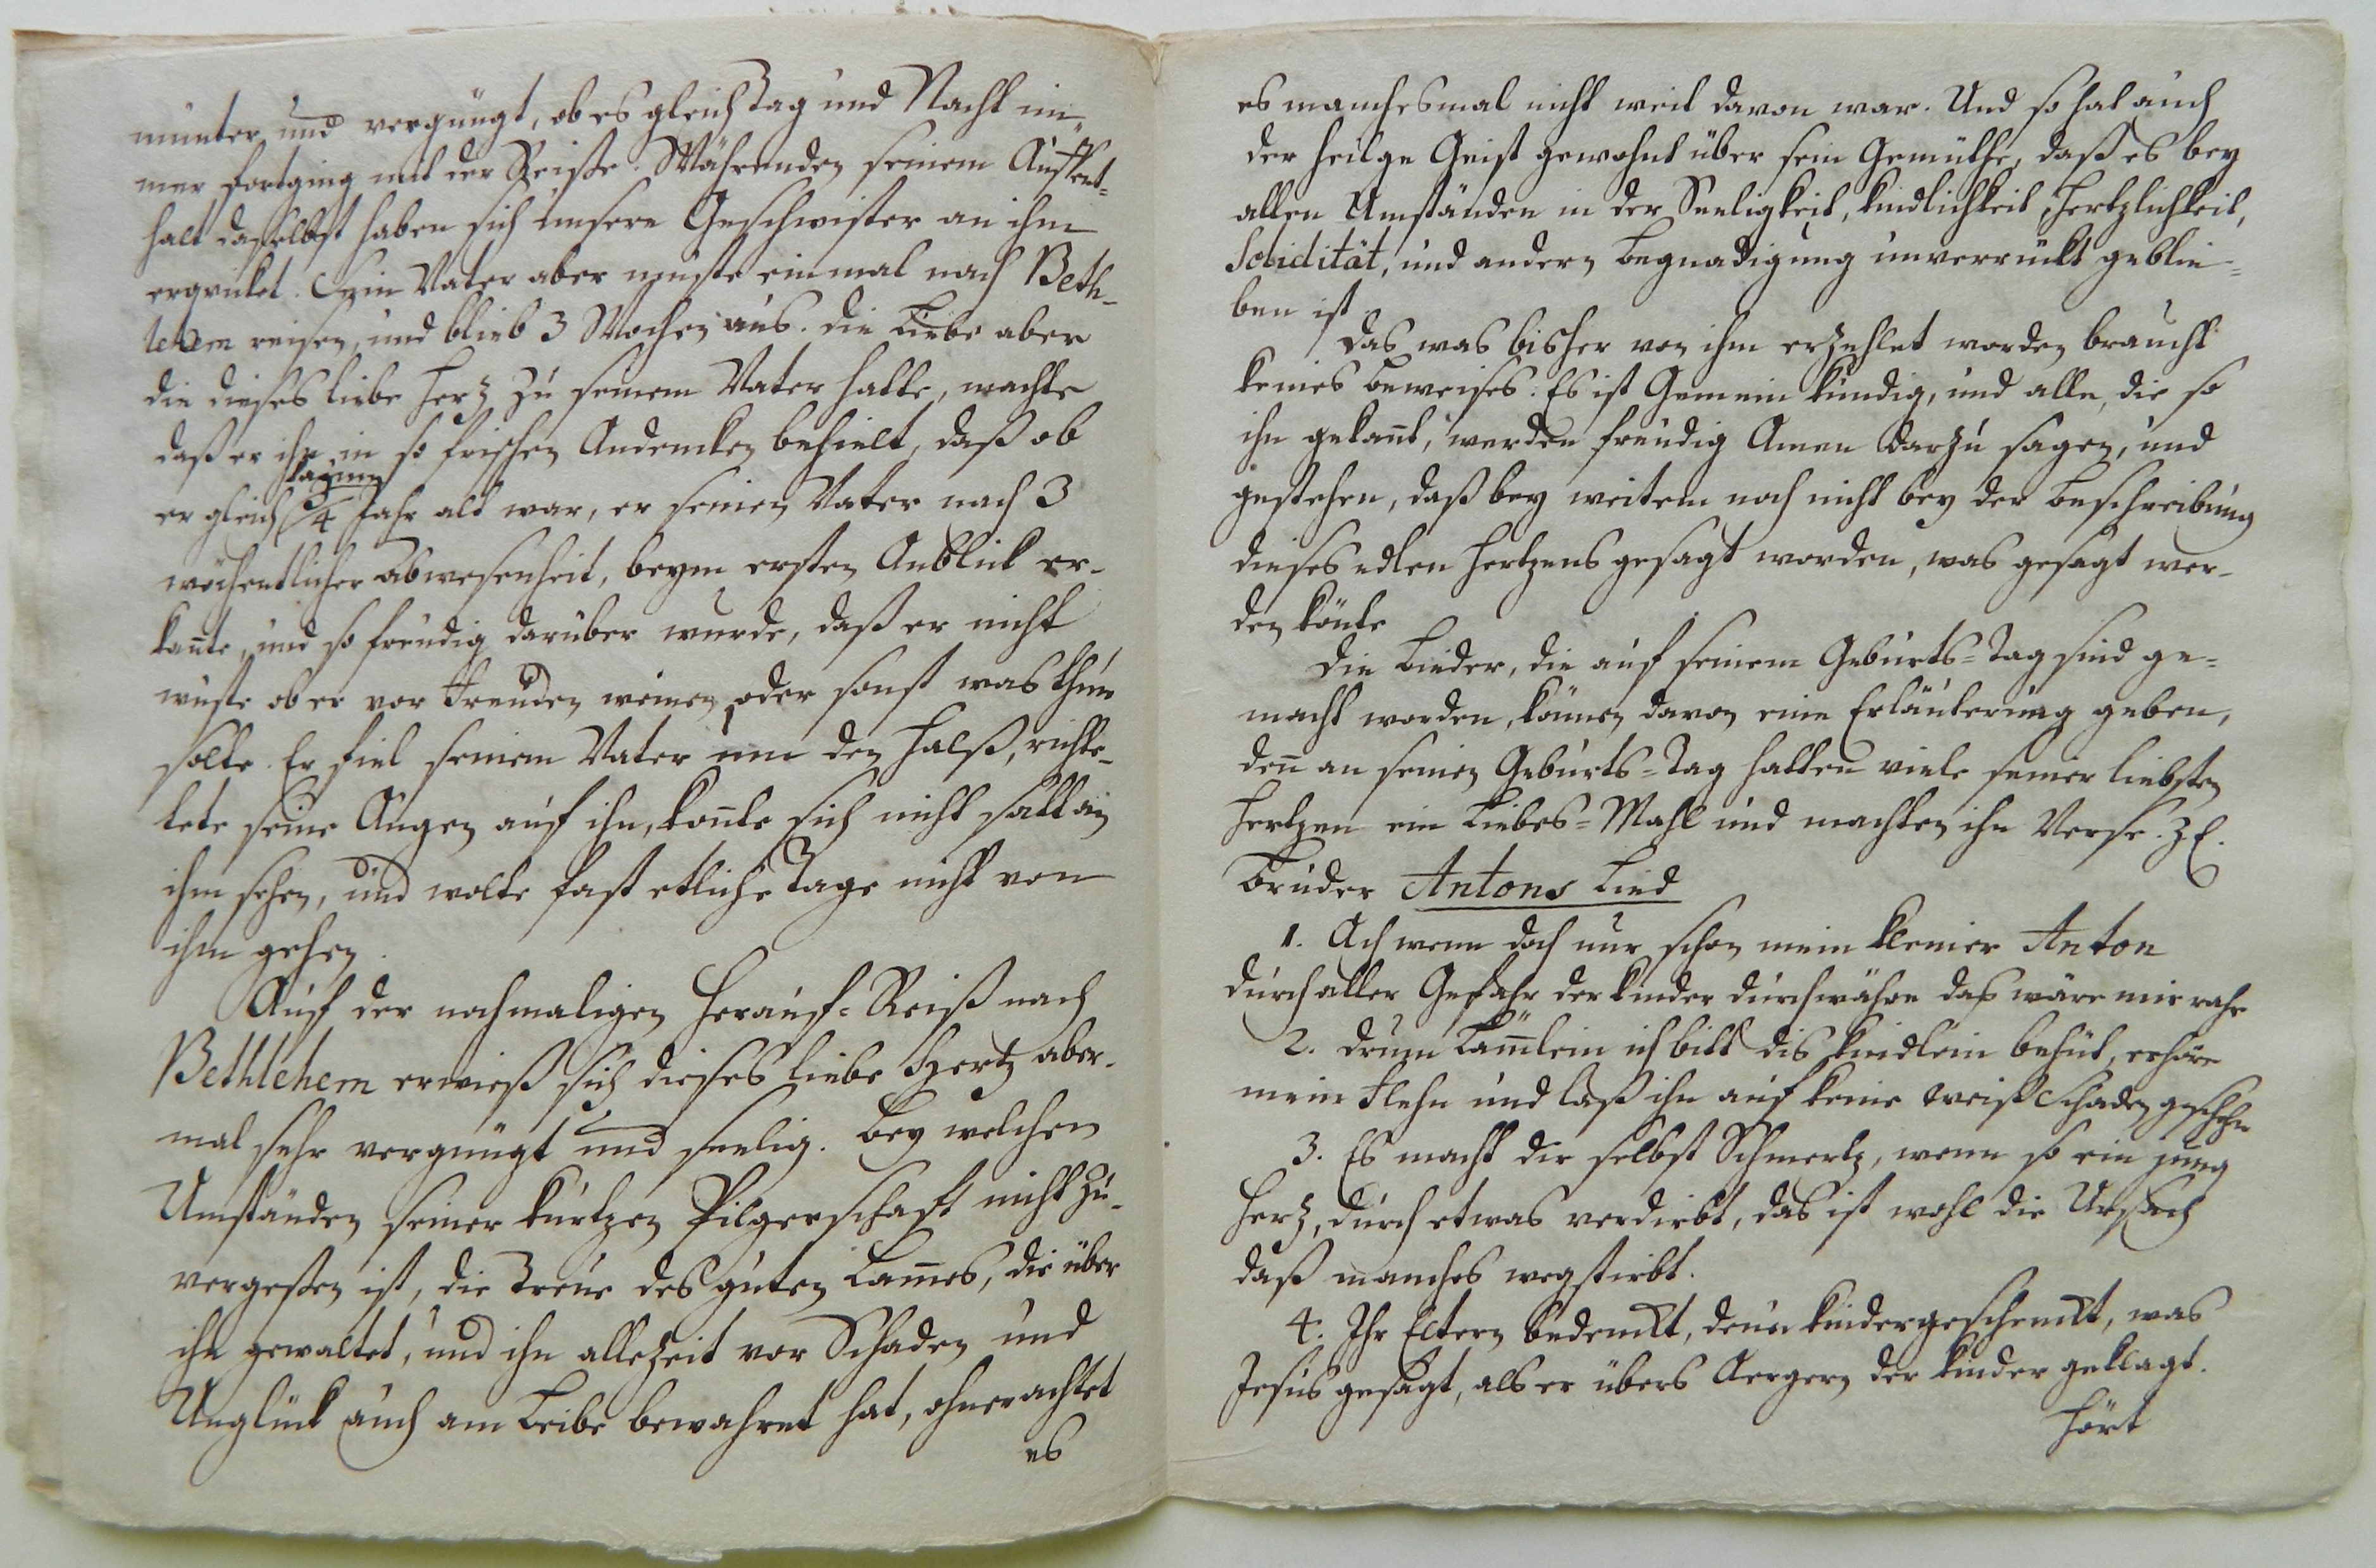 munter und vergnügt, ob es gleich Tag und Nacht im¯
mer fortging mit der Reiße. Währenden seinem Auffent=
halt daselbst haben sich unsere Geschwister an ihm
erqvickt. Sein Vater aber muste einmal nach Beth-
lehem reisen, und blieb 3 Wochen aus. die Liebe aber
die dieses liebe Herz zu seinem Vater hatte, machte
daß er ihn in so frischen Andencken behielt, daß ob
kaum
er gleich 3/4 Jahr alt war, er seinen Vater nach 3
wöchentlicher abwesenheit, beym ersten Anblick er-
kan̄te, und so freudig darüber wurde, daß er nicht
wuste ob er vor Freuden weinen oder sonst was thun
solte. Er fiel seinem Vater um den Halß, richte-
tete seine Augen auf ihn, kon̄te sich nicht satt an
ihm sehen, und wolte fast etliche Tage nicht von
ihm gehen.
Auf der nochmaligen Herauf=Reiß nach
Bethlehem erwieß sich dieses liebe Hertz aber-
mal sehr vergnügt und seelig. Bey welchen
Umständen seiner kurtzen Pilgerschaft nicht zu-
vergeßen ist, die Treue des guten Lam̄es, die über
ihn gewaltet, und ihn allezeit vor Schaden und
Unglück auch am Leibe bewahret hat, ohnerachtet
es
es manchesmal nicht weit davon war. Und so hat auch
der heilge Geist gewohnt über sein Gemüthe, daß es bey
allen Umständen in der Seeligkeit, kindlichkeit, Hertzlichkeit,
Solidität, und andern Begnadigung unverrückt geblie=
ben ist.
Das was bisher von ihm erzehlet worden braucht
keines Beweises. Es ist Gemein kundig, und alle, die so
ihn gekan̄t, werden freudig Amen darzu sagen, und
gestehen, daß bey weitem noch nicht bey der Beschreibung
dieses edlen Hertzens gesagt worden, was gesagt wer-
den kön̄te
Die Lieder, die auf seinem Geburts=Tag sind ge=
macht worden, können davon eine Erläuterung geben,
den̄ an seinen Geburts=Tag hatten viele seiner liebsten
Hertzen ein Liebes=Mahl und machten ihm Verse. z E.
Bruder Antons Lied
1. Ach wenn doch nur schon mein kleiner Anton
durch aller Gefahr der kinder durchwähre das wäre mir rahr
2. Drum Läm̄lein ich bitt dis kindlein behüt, erhöre
mein Flehn und laß ihn auf keine weiß Schaden geschehn
3. Es macht dir selbst Schmertz, wenn so ein jung
Herz, durch etwas verdirbt, das ist wohl die Ursach
daß manches wegstirbt.
4. Ihr Eltern bedenckt, denen kinder geschenckt, was
Jesus gesagt, als er übers Aergern der kinder geklagt.
hört